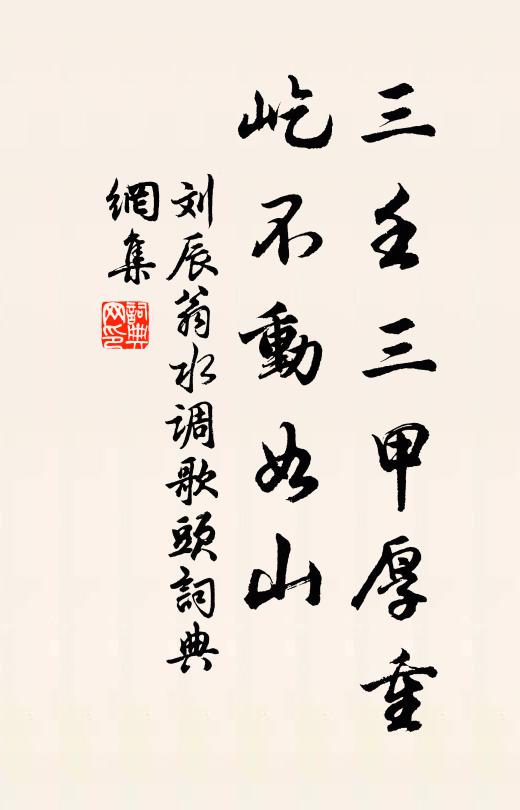 三壬三甲厚重
屹不動如山
刘辰翁水调歌頭詞典
網集
詞典
网印